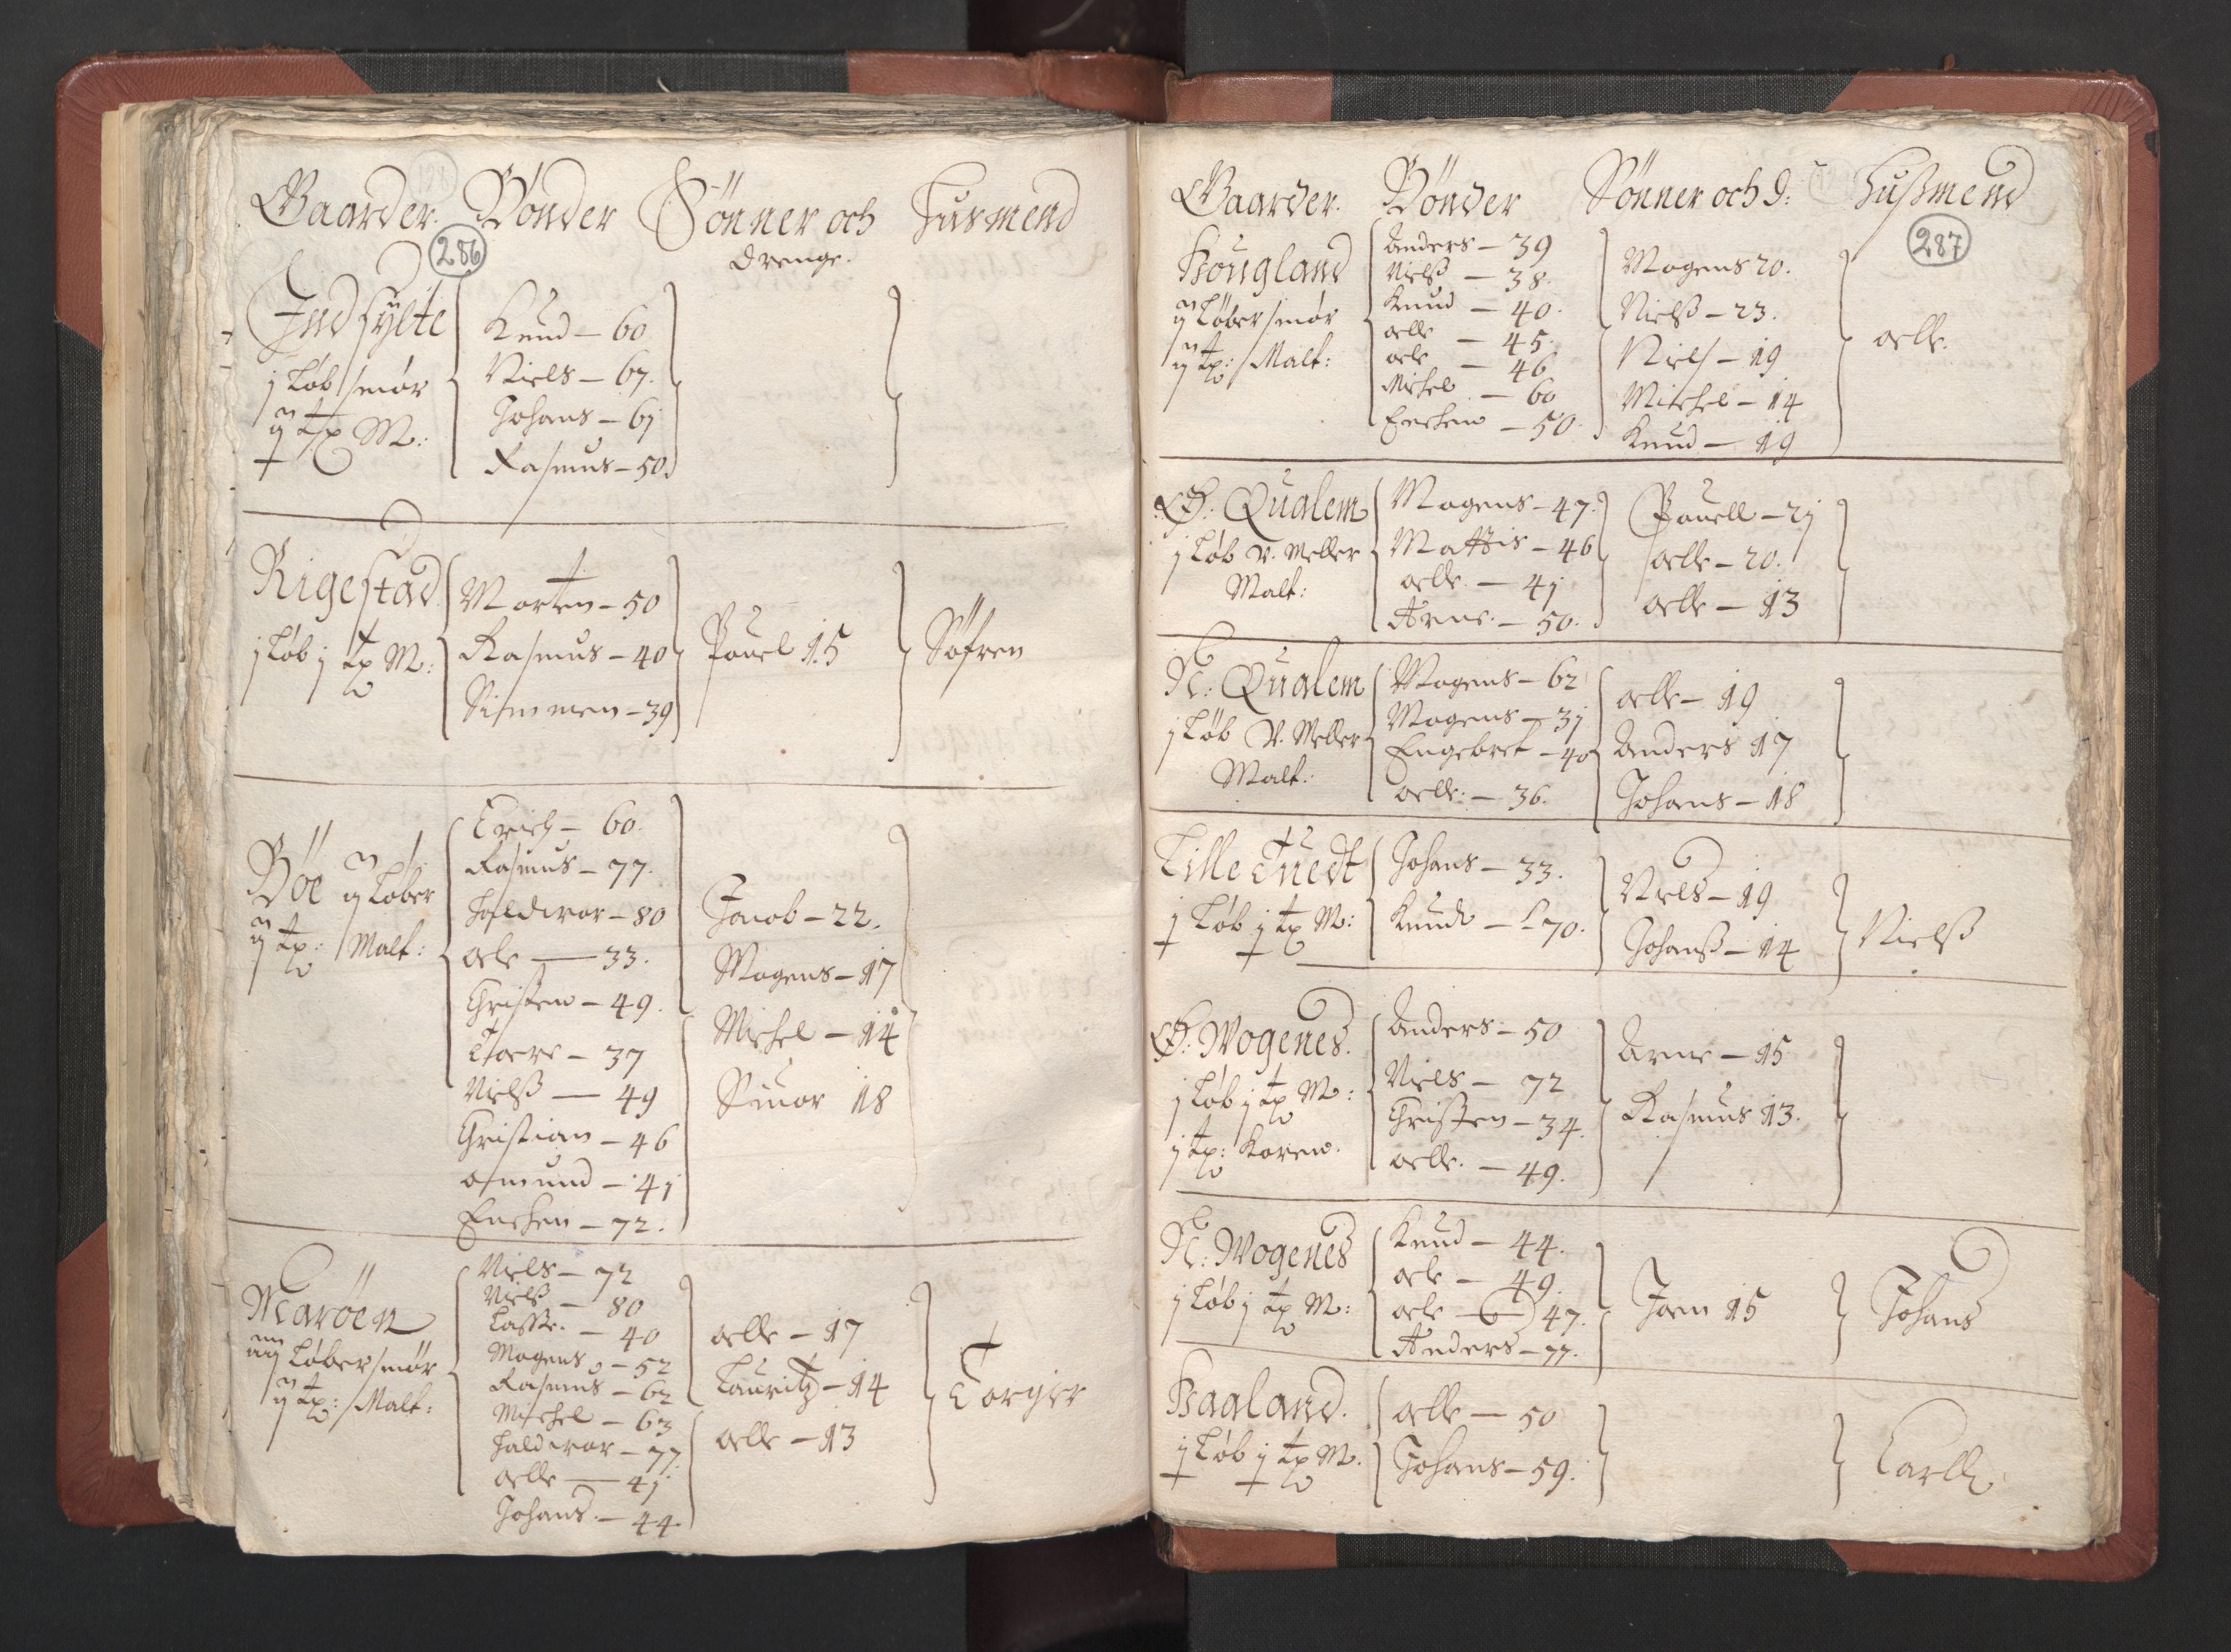 Gaarder. Bönder Sönner och Husmend
286
drenge.
Indsylte
j Løb smør
ij tp M:
Knud – 60
Niels – 67.
Johans – 61
Rasmus – 50
Rigestad
j Løb j tp M:
Morten – 50
Rasmus – 40
Simmen – 39
Pouel 15
Söfren
Böe ij Løber
ij tp: Malt:
Erich – 60.
Rasmus – 77.
Haldwor – 80
Ole — 33.
Christen – 49.
Tore – 37
Nielß — 49
Christian – 46
Osmund – 41
Enchen – 72.
Jacob – 22.
Mogens – 17
Michel – 14
Siuor 18
Maröen
iiij Løber smør
ij tp: Malt:
Niels – 72
Nielß – 80
Lasse. – 40
Mogens – 52
Rasmus – 62
Michel – 63
Haldwor – 77
Olle — 41
Johans – 44
Olle – 17
Lauritz – 14
Olle – 13
Torgier
Gaarder. Bönder Sönner och d: Hußmend
287
Hougland
ij Løber smør
ij tp: Malt:
Anders – 39
Nielß – 38.
Knud – 40.
Olle – 45.
Ole – 46
Michel – 60
Enchen – 50.
Mogens 20.
Nielß – 23.
Niels – 19
Michel – 14
Knud – 19
Olle.
Ö: Qualem
j Løb V. Meller
Malt:
Mogens – 47.
Mattis – 46
Olle. – 41
Arne. – 50.
Pouell – 21
Olle – 20.
Olle – 13
N: Qualem
j Løb V. Meller
Malt:
Mogens – 62
Mogens – 31
Engebret – 40
Olle: – 36.
Olle – 19
Anders 17
Johans – 18
Lille Tuedt
j Løb j tp M:
Johans – 33.
Knud – 70.
Niels – 19
Johanß – 14
Nielß
Ö: Wogenes.
j Løb j tp M:
j tp: Koren.
Anders – 50
Niels – 72
Christen – 34.
Olle. – 49.
Arne – 15
Rasmus 13.
N: Wogenes
j Løb j tp M:
Knud – 44.
Ole – 49.
Ole – 47.
Anders – 77.
Joen 15
Johans
Haaland.
j Løb j tp M.
Olle – 50
Johans – 59.
Carll